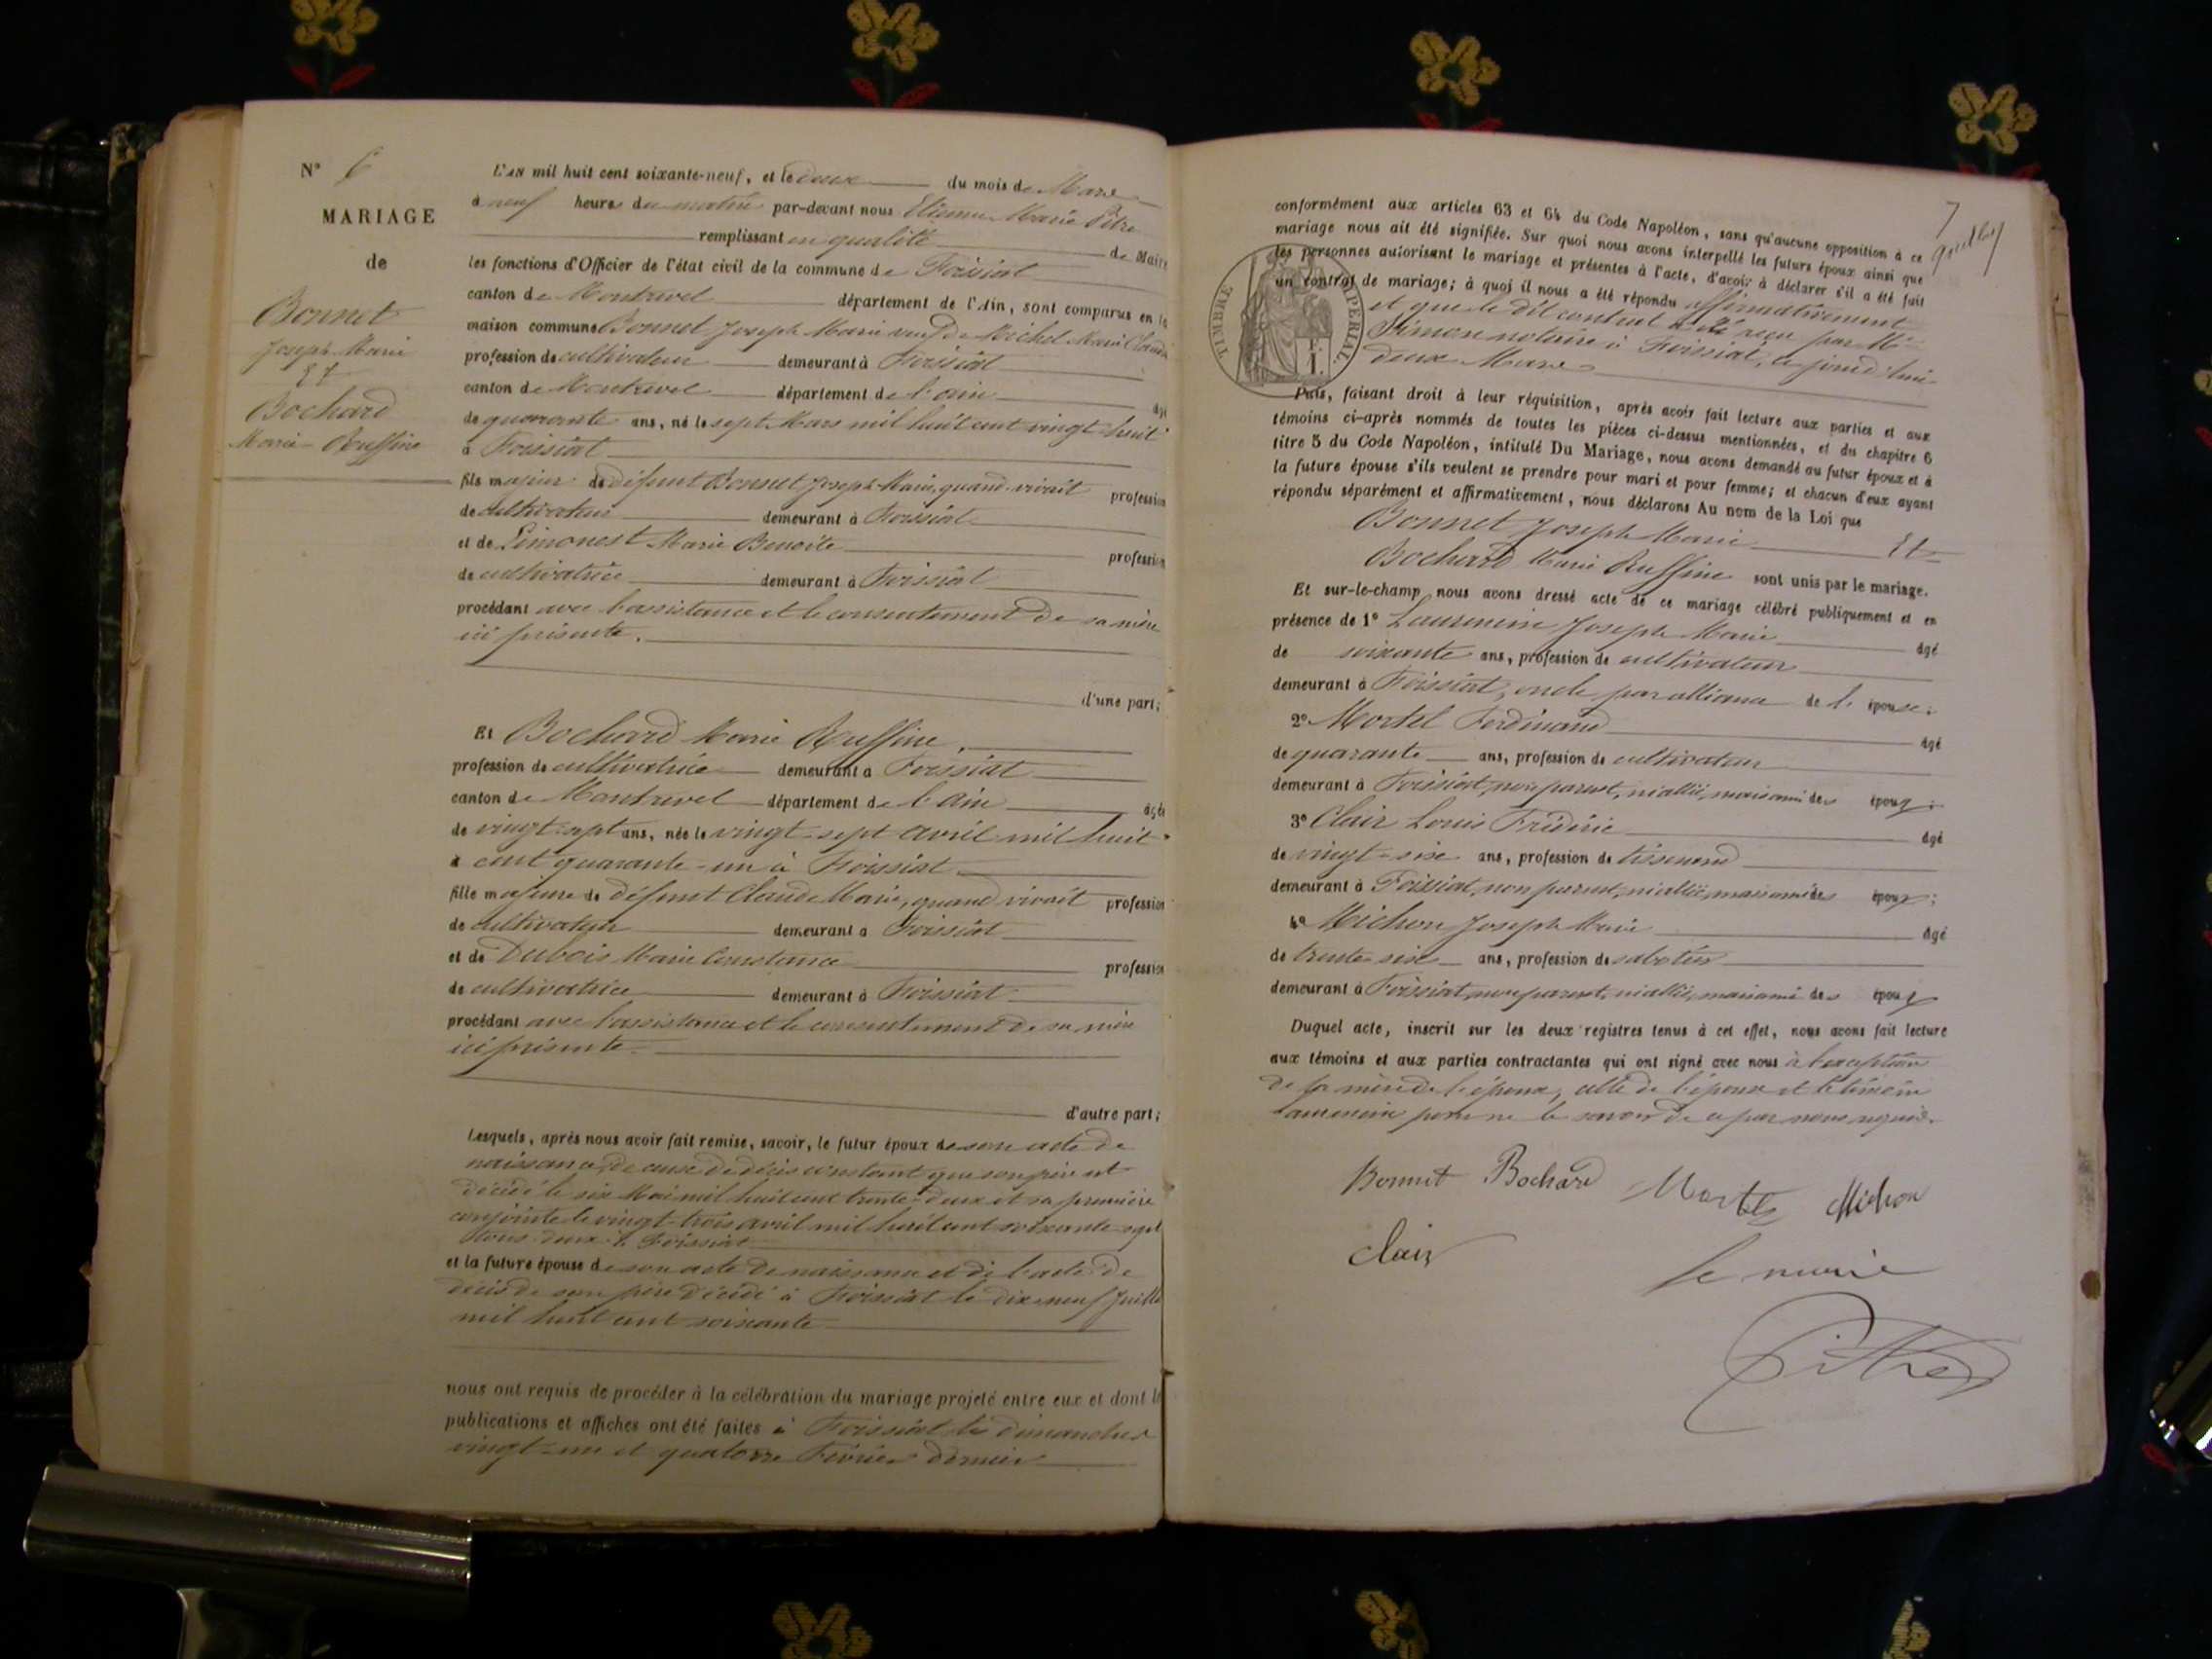 N° 6
MARIAGE
de
Bonnet
Joseph Marie
Et
Bochard
Marie-Ruffine
L'AN mil huit cent soixante-neuf, et le deux du mois de Mars
à neuf heures du matin par-devant nous Etienne Marie Pitre
remplissant en qualité de Maire
les fonctions d'Officier de l'état civil de la commune de Foissiat
canton de Montrevel département de l'Ain, sont comparus en la
maison commune Bonnet Joseph Marie veuf de Michel Marie Claudine
profession de cultivateur demeurant à Foissiat
canton de Montrevel département de l'ain âgé
de quarante ans, né le sept Mars mil huit cent vingt-huit
à Foissiat
fils majeur de défunt Bonnet Joseph Marie, quand vivait profession
de cultivateur demeurant à Foissiat
et de Limonest Marie Benoite profession
de cultivatrice demeurant à Foissiat
procédant avec l'assistance et le consentement de sa mère
ici présente.
d'une part;
Et Bochard Marie Ruffine,
profession de cultivatrice demeurant à Foissiat
canton de Montrevel département de l'Ain âgée
de vingt-sept ans, née le vingt-sept avril mil huit
à cent quarante-un à Foissiat
fille majeure de défunt Claude Marie, quand vivait profession
de cultivateur demeurant à Foissiat
et de Dubois Marie Constance profession
de cultivatrice demeurant à Foissiat
procédant avec l'assistance et le consentement de sa mère
ici présente.
d'autre part;
Lesquels, après nous avoir fait remise, savoir, le futur époux de son acte de
naissance, de ceux de décès constant que son père est
décédé le six Mai mil huit cent trente-deux et sa première
conjointe le vingt-trois avril mil huit cent soixante-sept
tous deux à Foissiat
et la future épouse de son acte de naissance et de l'acte de
décès de son père décédé à Foissiat le dix-neuf Juillet
mil huit cent soixante
nous ont requis de procéder à la célébration du mariage projeté entre eux et dont les
publications et affiches ont été faites à Foissiat les dimanches
vingt-un et quatorze Février dernier
7
conformément aux articles 63 et 64 du Code Napoléon, sans qu'aucune opposition à ce
mariage nous ait été signifiée. Sur quoi nous avons interpellé les futurs époux ainsi que
les personnes autorisant le mariage et présentes à l'acte, d'avoir à déclarer s'il a été fait
un contrat de mariage; à quoi il nous a été répondu affirmativement
et que le dit contrat a été reçu par Me
Simon notaire à Foissiat, ce jourd'hui
deux Mars
TIMBRE IMPÉRIAL
Puis, faisant droit à leur réquisition, après avoir fait lecture aux parties et aux
témoins ci-après nommés de toutes les pièces ci-dessus mentionnées, et du chapitre 6
titre 5 du Code Napoléon, intitulé Du Mariage, nous avons demandé au futur époux et à
la future épouse s'ils veulent se prendre pour mari et pour femme; et chacun d'eux ayant
répondu séparément et affirmativement, nous déclarons Au nom de la Loi que
Bonnet Joseph Marie Et
Bochard Marie Ruffine sont unis par le mariage.
Et sur-le-champ nous avons dressé acte de ce mariage célébré publiquement et en
présence de 1° Laurencin Joseph Marie âgé
de soixante ans, profession de cultivateur
demeurant à Foissiat, oncle par alliance de l'épouse;
2° Mortel Ferdinand âgé
de quarante ans, profession de cultivateur
demeurant à Foissiat, non parent, ni allié, mais ami des époux;
3° Clair Louis Frédéric âgé
de vingt-six ans, profession de tisserand
demeurant à Foissiat, non parent, ni allié, mais ami des époux;
4° Michon Joseph Marie âgé
de trente six ans, profession de sabotier
demeurant à Foissiat, non parent, ni allié, mais ami des époux
Duquel acte, inscrit sur les deux registres tenus à cet effet, nous avons fait lecture
aux témoins et aux parties contractantes qui ont signé avec nous à l'exception
de la mère de l'époux, celle de l'épouse et le témoin
Laurencin pour ne le savoir de ce par nous requis.
Bonnet Bochard Mortel Michon
Clair
le maire
Pitre